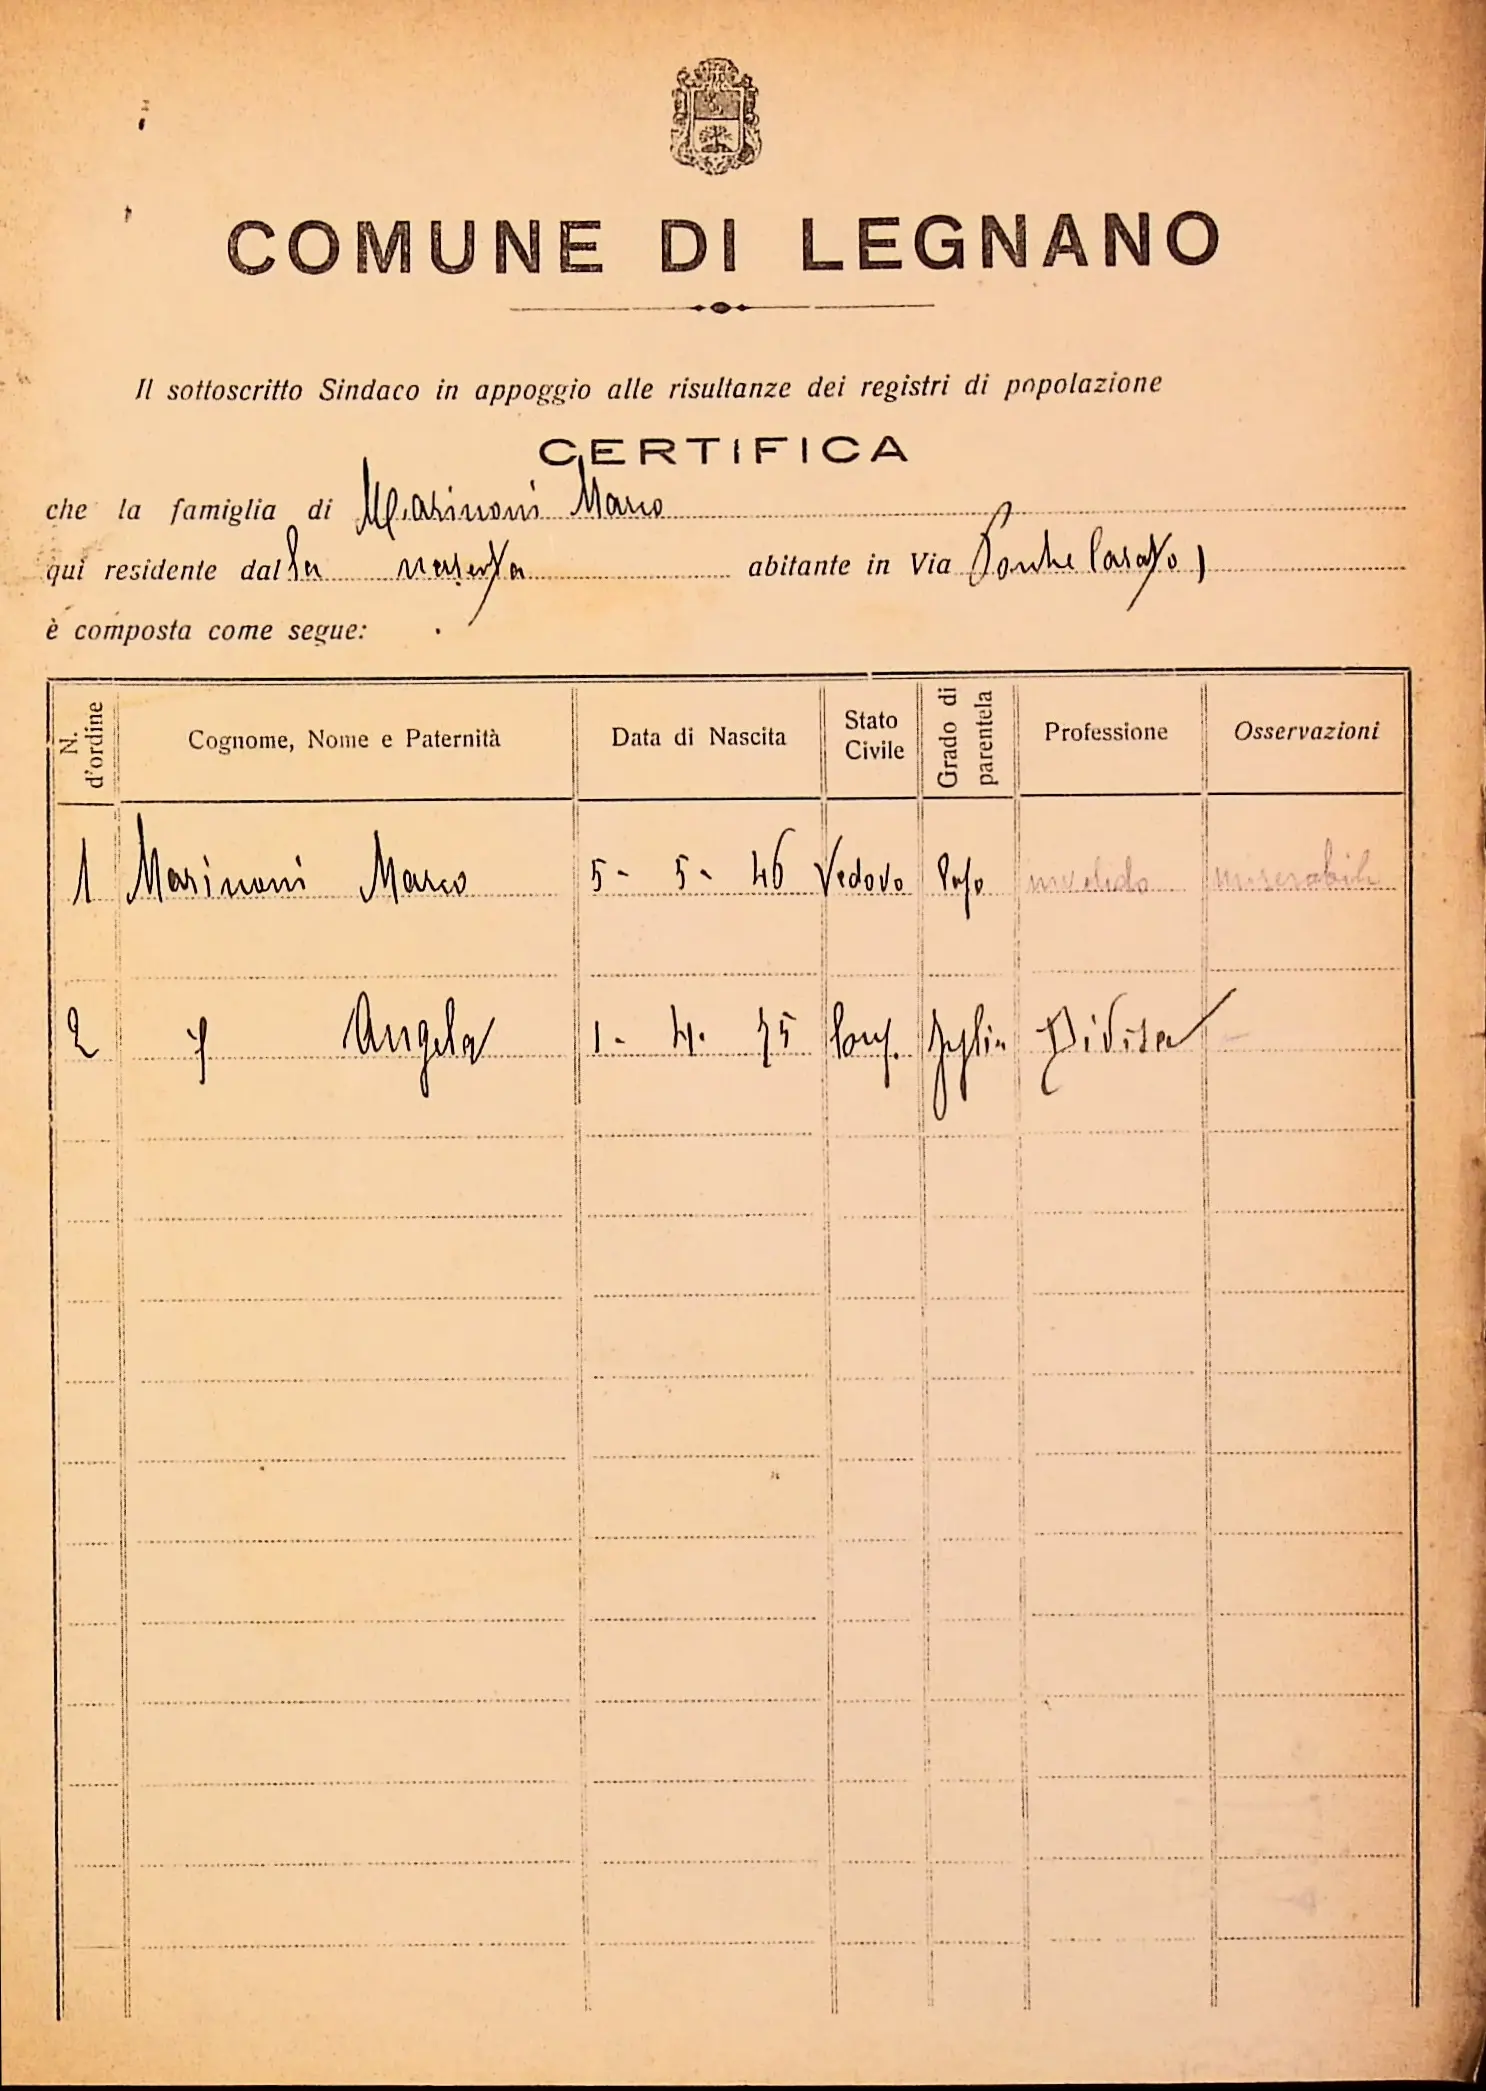 COMUNE DI LEGNANO
Il sottoscritto Sindaco in appoggio alle risultanze dei registri di popolazione
CERTIFICA
che la famiglia di Marinoni Marco
qui residente dal la nascita abitante in Via Ponte Carato 1
è composta come segue:
N. d'ordine Cognome, Nome e Paternità Data di Nascita Stato Civile Grado di parentela Professione Osservazioni
1 Marinoni Marco 5 - 5 - 46 Vedovo Capo invalido miserabile
2 Angela 1 - 4 - 75 Conj. figlia Divisa